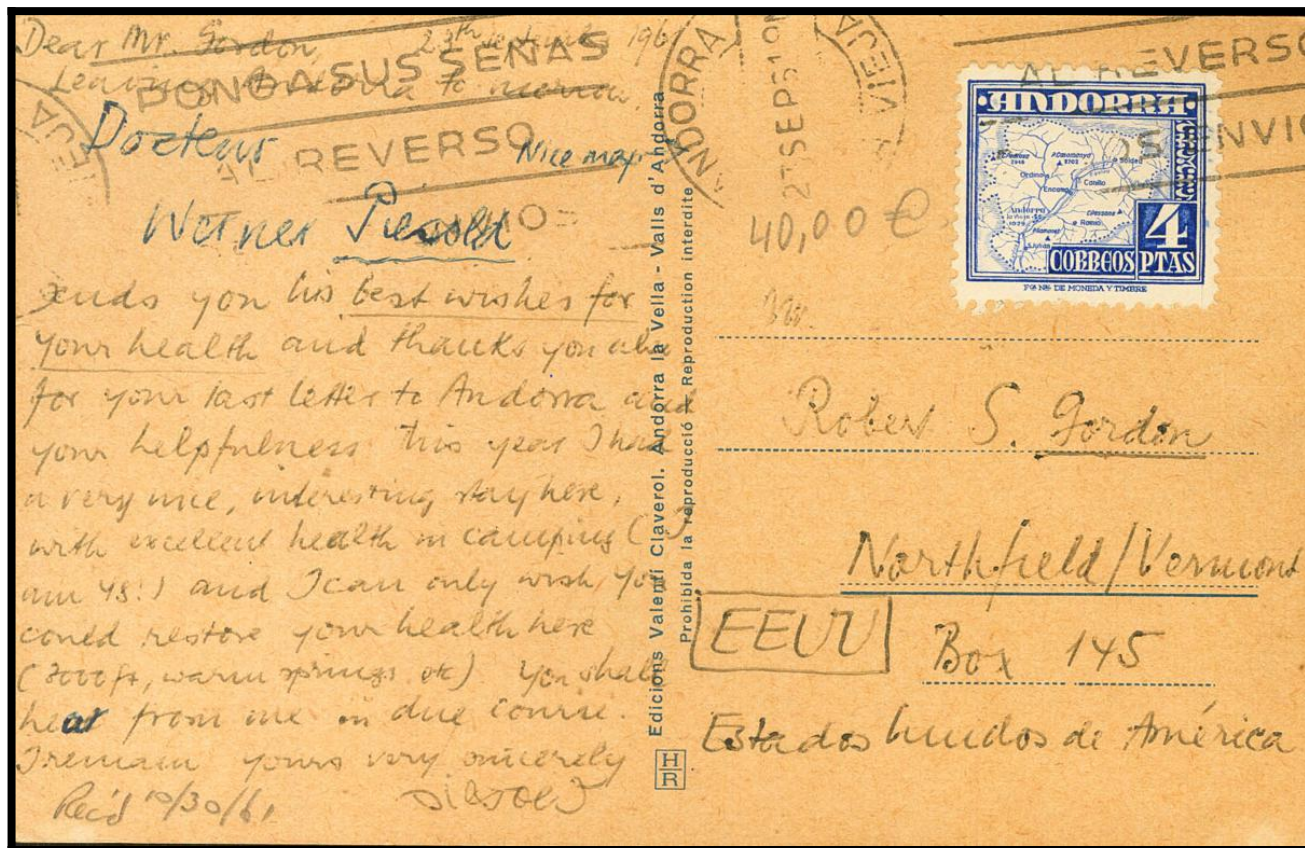 Dear Mr. Gordon, 25th September 1961
Leaving Andorra to morrow.
PONGA SUS SEÑAS
AL REVERSO
Docteur
Nice map
Werner
sends you his best wishes for
your health and thanks you also
for your last letter to Andorra and
your helpfulness. This year I had
a very nice, interesting stay here,
with excellent health in camping (I
am 43!) and I can only wish, you
could restore your health here
(3000 ft, warm springs etc) You shall
hear from me in due course.
I remain yours very sincerely
Rec'd 10/30/61
Edicions Valentí Claverol. Andorra la Vella - Valls d'Andorra
Prohibida la reproducció - Reproduction interdite
HR
ANDORRA
VIEJA
SEP
40,00 €
AL REVERSO
ENVIO
ANDORRA
CORREOS
4
PTAS
Fca Nal DE MONEDA Y TIMBRE
Robert S. Gordon
Northfield/Vermont
EEUU
Box 145
Estados Unidos de América